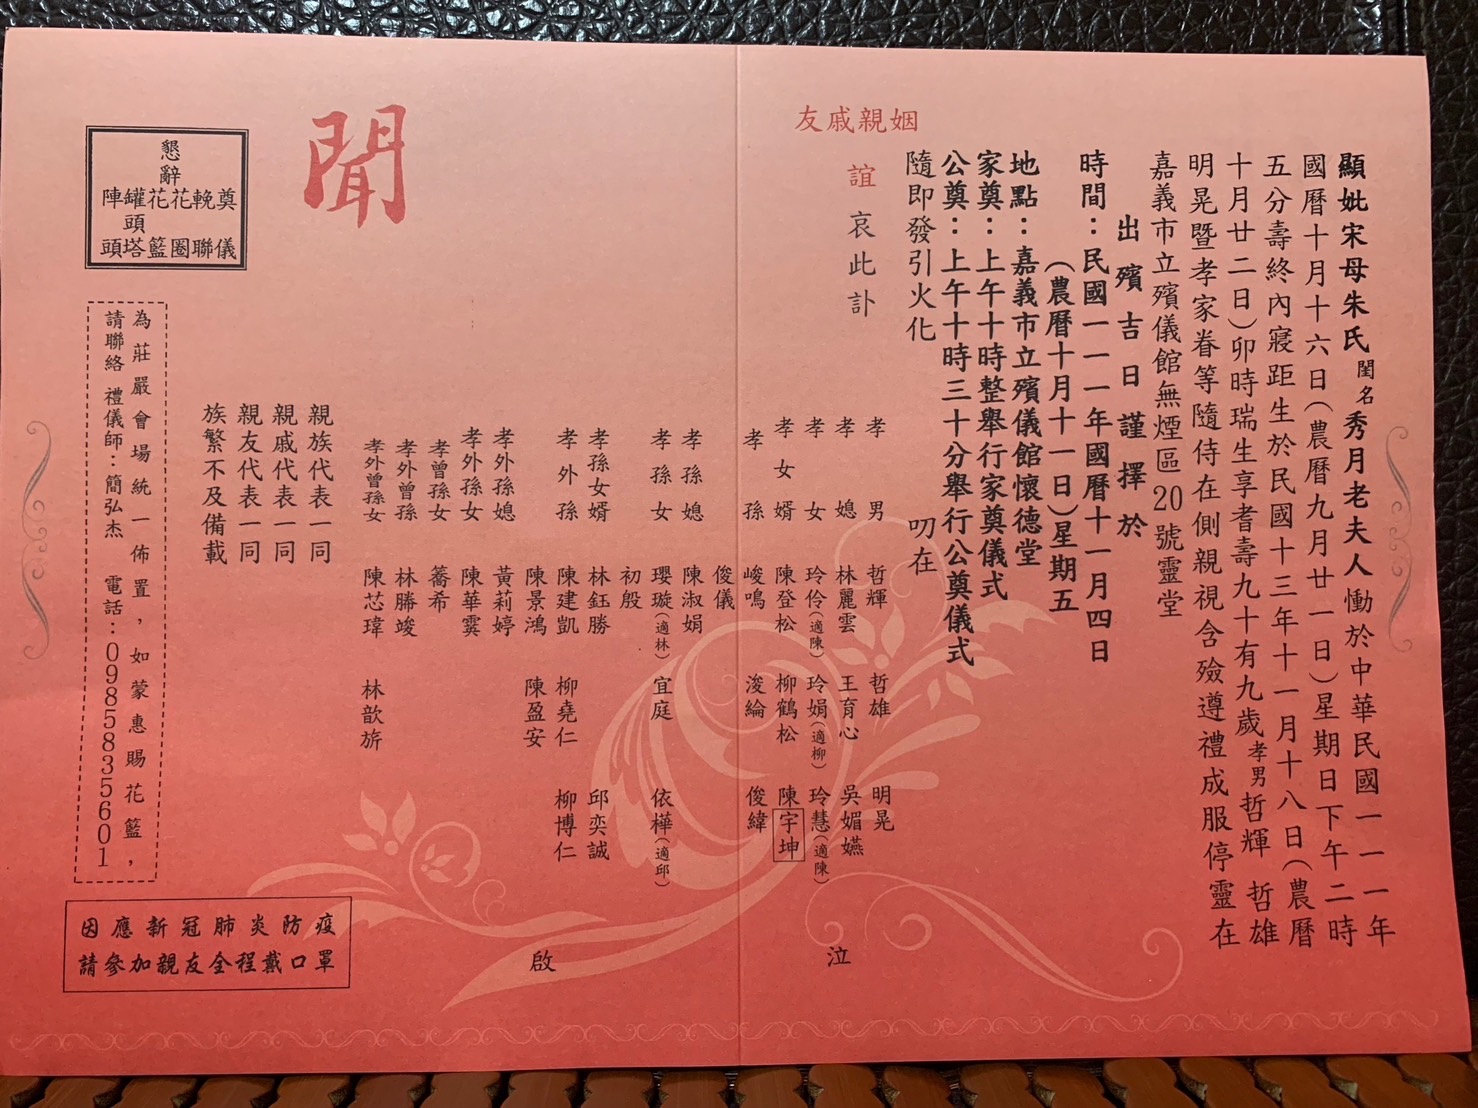 顯妣宋母朱氏閨名秀月老夫人慟於中華民國一一一年
國曆十月十六日(農曆九月廿一日)星期日下午二時
五分壽終內寢距生於民國十三年十一月十八日(農曆
十月廿二日)卯時瑞生享耆壽九十有九歲孝男哲輝 哲雄
明晃暨孝家眷等隨侍在側親視含殮遵禮成服停靈在
嘉義市立殯儀館無煙區20號靈堂
出殯吉日謹擇於
時間：民國一一一年國曆十一月四日
(農曆十月十一日)星期五
地點：嘉義市立殯儀館懷德堂
家奠：上午十時整舉行家奠儀式
公奠：上午十時三十分舉行公奠儀式
隨即發引火化
叨在
姻親戚友
誼 哀此訃
聞
孝男 哲輝 哲雄 明晃
孝媳 林麗雲 王育心 吳媚嬿
孝女 玲伶(適陳) 玲娟(適柳) 玲慧(適陳)
孝女婿 陳登松 柳鶴松 陳宇坤
孝孫 峻鳴 浚綸 俊緯
俊儀
泣
孝孫媳 陳淑娟
孝孫女 瓔璇(適林) 宜庭 依樺(適邱)
初殷
孝孫女婿 林鈺勝 邱奕誠
孝外孫 陳建凱 柳堯仁 柳博仁
陳景鴻 陳盈安
孝外孫媳 黃莉婷
孝外孫女 陳華霙
孝曾孫女 蕎希
孝外曾孫 林勝竣
孝外曾孫女 陳芯瑋 林歆旂
啟
親族代表一同
親戚代表一同
親友代表一同
族繁不及備載
懇辭
奠儀
輓聯
花圈
花籃
罐頭塔
陣頭
為莊嚴會場統一佈置，如蒙惠賜花籃，
請聯絡 禮儀師：簡弘杰 電話：0985835601
因應新冠肺炎防疫
請參加親友全程戴口罩